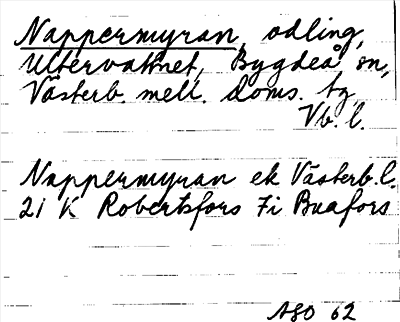 Nappermyran, odling,
Yttervattnet, Bygdeå sn,
Västerb. mell. doms. tg
Vb. l.
Nappermyran ek Västerb. l.
21 K Robertsfors 7i Buafors
ASO 62